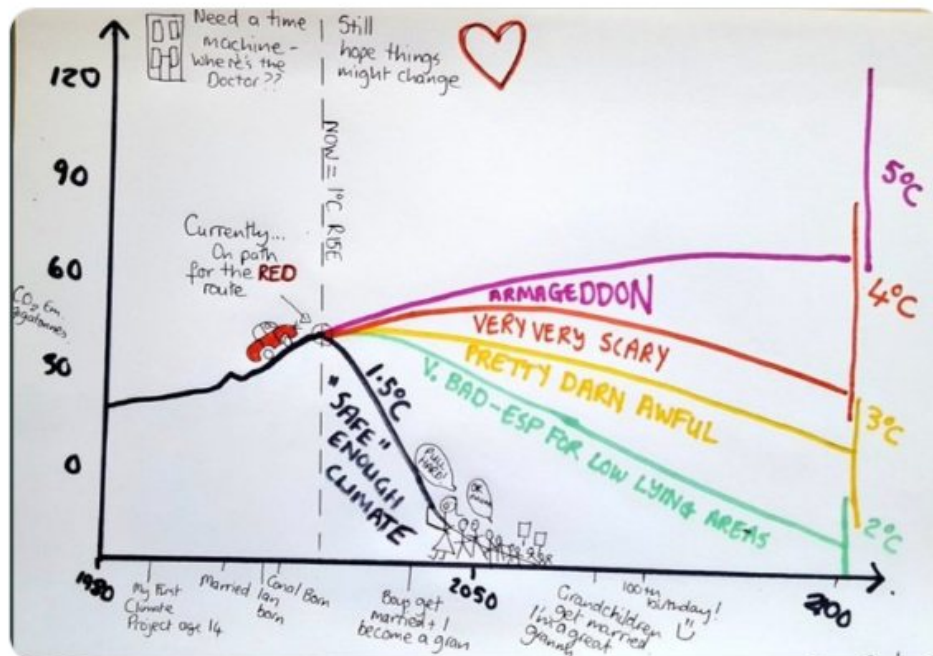 Need a time
machine -
where's the
Doctor??
Still
hope things
might change
NOW = 1°C RISE
120
90
60
30
0
CO₂ Em.
Currently...
On path
for the RED
route
ARMAGEDDON
VERY VERY SCARY
PRETTY DARN AWFUL
V. BAD-ESP FOR LOW LYING AREAS
1.5°C
"SAFE"
ENOUGH
CLIMATE
PULL
HARD!
OK
MUM
5°C
4°C
3°C
2°C
1980
2050
2100
My First
Climate
Project age 14
Married
Ian
born
Conal Born
Boys get
married + I
become a gran
Grandchildren
get married
I'm a great
granny
100th
birthday!